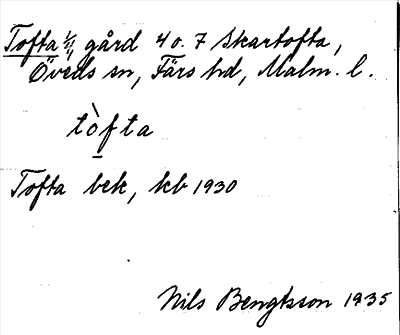 Tofta 1/1 gård 4 o. 7 Skartofta,
Öveds sn, Färs hd, Malm. l.
tòfta
Tofta bek, kb 1930
Nils Bengtsson 1935